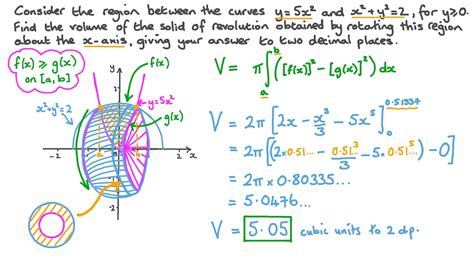 Consider the region between the curves y=5x² and x²+y²=2, for y⩾0.
Find the volume of the solid of revolution obtained by rotating this region
about the x-axis, giving your answer to two decimal places.
f(x) ⩾ g(x)
on [a, b]
y
f(x)
2
x²+y²=2
y=5x²
1
g(x)
-2
a
b
2
x
-1
-2
V = π∫ₐᵇ([f(x)]²-[g(x)]²)dx
V = 2π[2x - x³/3 - 5x⁵]₀^0.51337
= 2π[(2×0.51... - 0.51...³/3 - 5×0.51...⁵) - 0]
= 2π × 0.80335...
= 5.0476...
V = 5.05 cubic units to 2 dp.